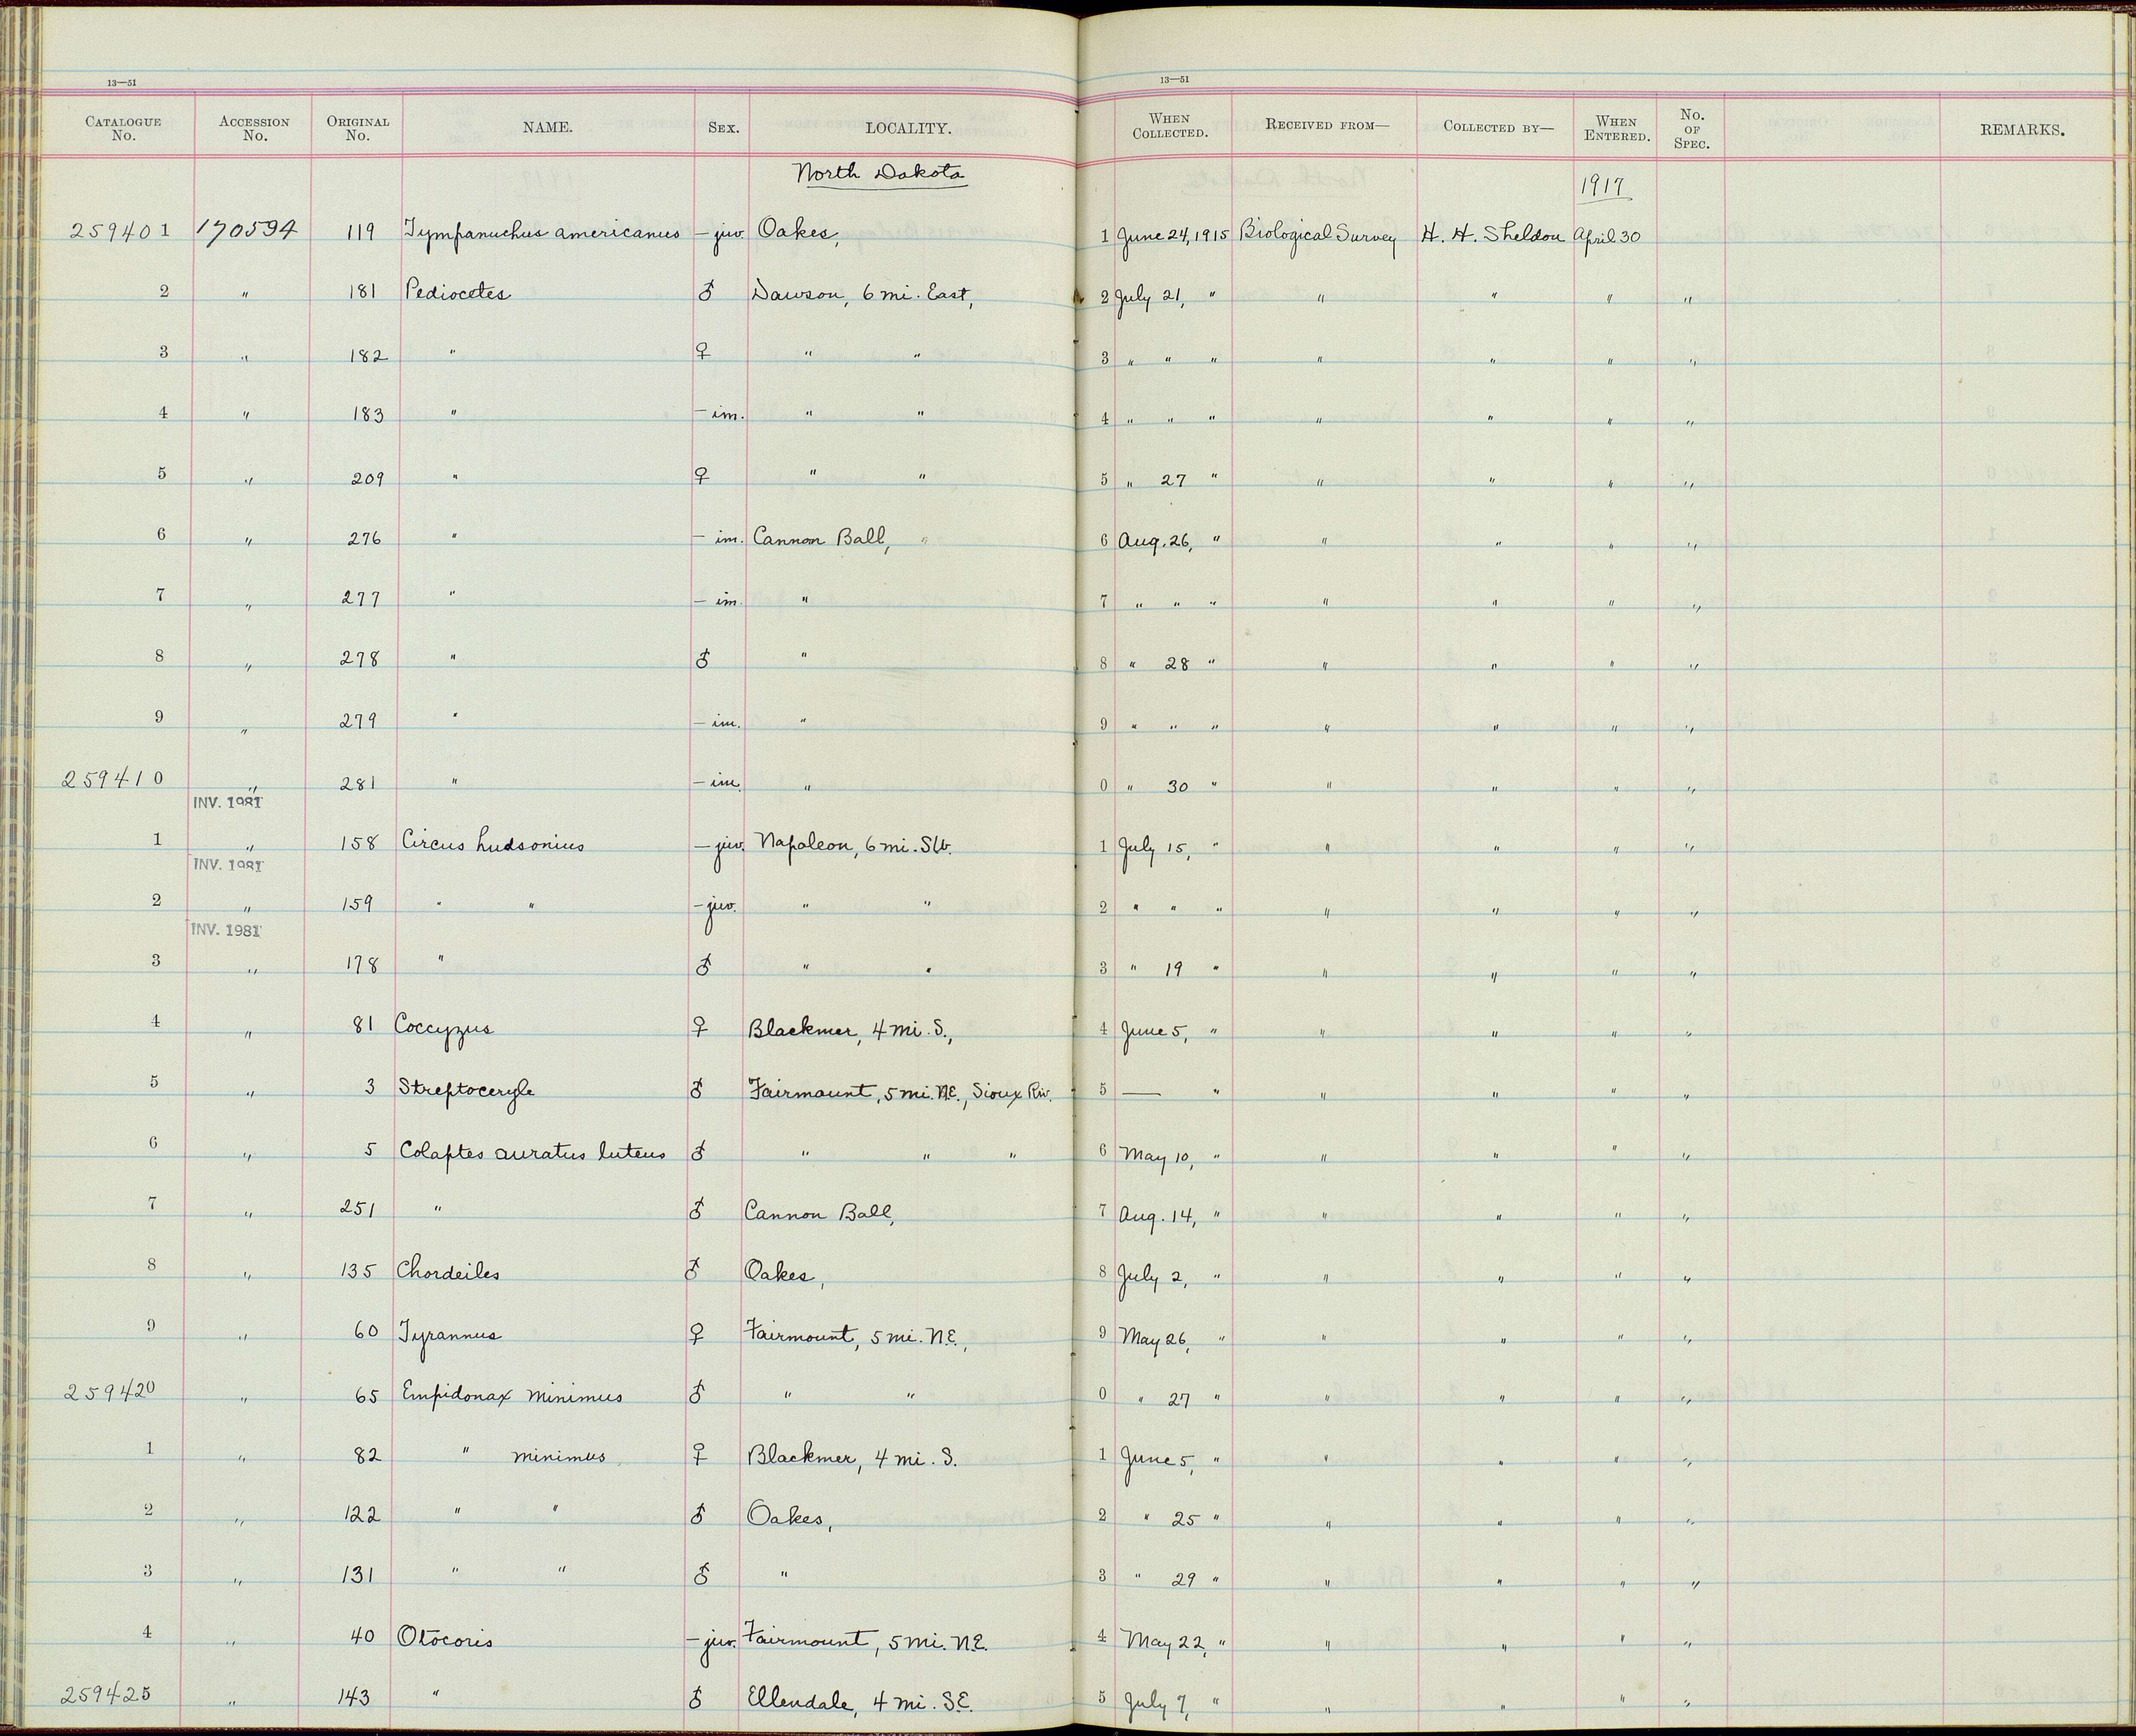 13—51 13—51
CATALOGUE No. ACCESSION No. ORIGINAL No. NAME. SEX. LOCALITY. WHEN COLLECTED. RECEIVED FROM— COLLECTED BY— WHEN ENTERED. No. OF SPEC. REMARKS.
North Dakota 1917
259401 170594 119 Tympanuchus americanus – juv. Oakes, 1 June 24, 1915 Biological Survey H. H. Sheldon April 30
2 " 181 Pediocetes ♂ Dawson, 6 mi. East, 2 July 21, " " " " "
3 " 182 " ♀ " " 3 " " " " " " "
4 " 183 " – im. " " 4 " " " " " " "
5 " 209 " ♀ " " 5 " 27 " " " " "
6 " 276 " – im. Cannon Ball, " 6 Aug. 26, " " " " "
7 " 277 " – im. " 7 " " " " " " "
8 " 278 " ♂ " 8 " 28 " " " " "
9 " 279 " – im. " 9 " " " " " " "
259410 " 281 " – im. " 0 " 30 " " " " "
INV. 1981
1 " 158 Circus hudsonius – juv. Napoleon, 6 mi. SW. 1 July 15, " " " " "
INV. 1981
2 " 159 " " – juv. " " 2 " " " " " " "
INV. 1981
3 " 178 " ♂ " " 3 " 19 " " " " "
4 " 81 Coccyzus ♀ Blackmer, 4 mi. S., 4 June 5, " " " " "
5 " 3 Streptoceryle ♂ Fairmount, 5 mi. N.E., Sioux Riv. 5 — " " " " "
6 " 5 Colaptes auratus luteus ♂ " " " 6 May 10, " " " " "
7 " 251 " ♂ Cannon Ball, 7 Aug. 14, " " " " "
8 " 135 Chordeiles ♂ Oakes, 8 July 2, " " " " "
9 " 60 Tyrannus ♀ Fairmount, 5 mi. N.E., 9 May 26, " " " " "
259420 " 65 Empidonax minimus ♂ " " 0 " 27 " " " " "
1 " 82 " minimus ♀ Blackmer, 4 mi. S. 1 June 5, " " " " "
2 " 122 " " ♂ Oakes, 2 " 25 " " " " "
3 " 131 " " ♂ " 3 " 29 " " " " "
4 " 40 Otocoris – juv. Fairmount, 5 mi. N.E. 4 May 22, " " " " "
259425 " 143 " ♂ Ellendale, 4 mi. S.E. 5 July 7, " " " " "